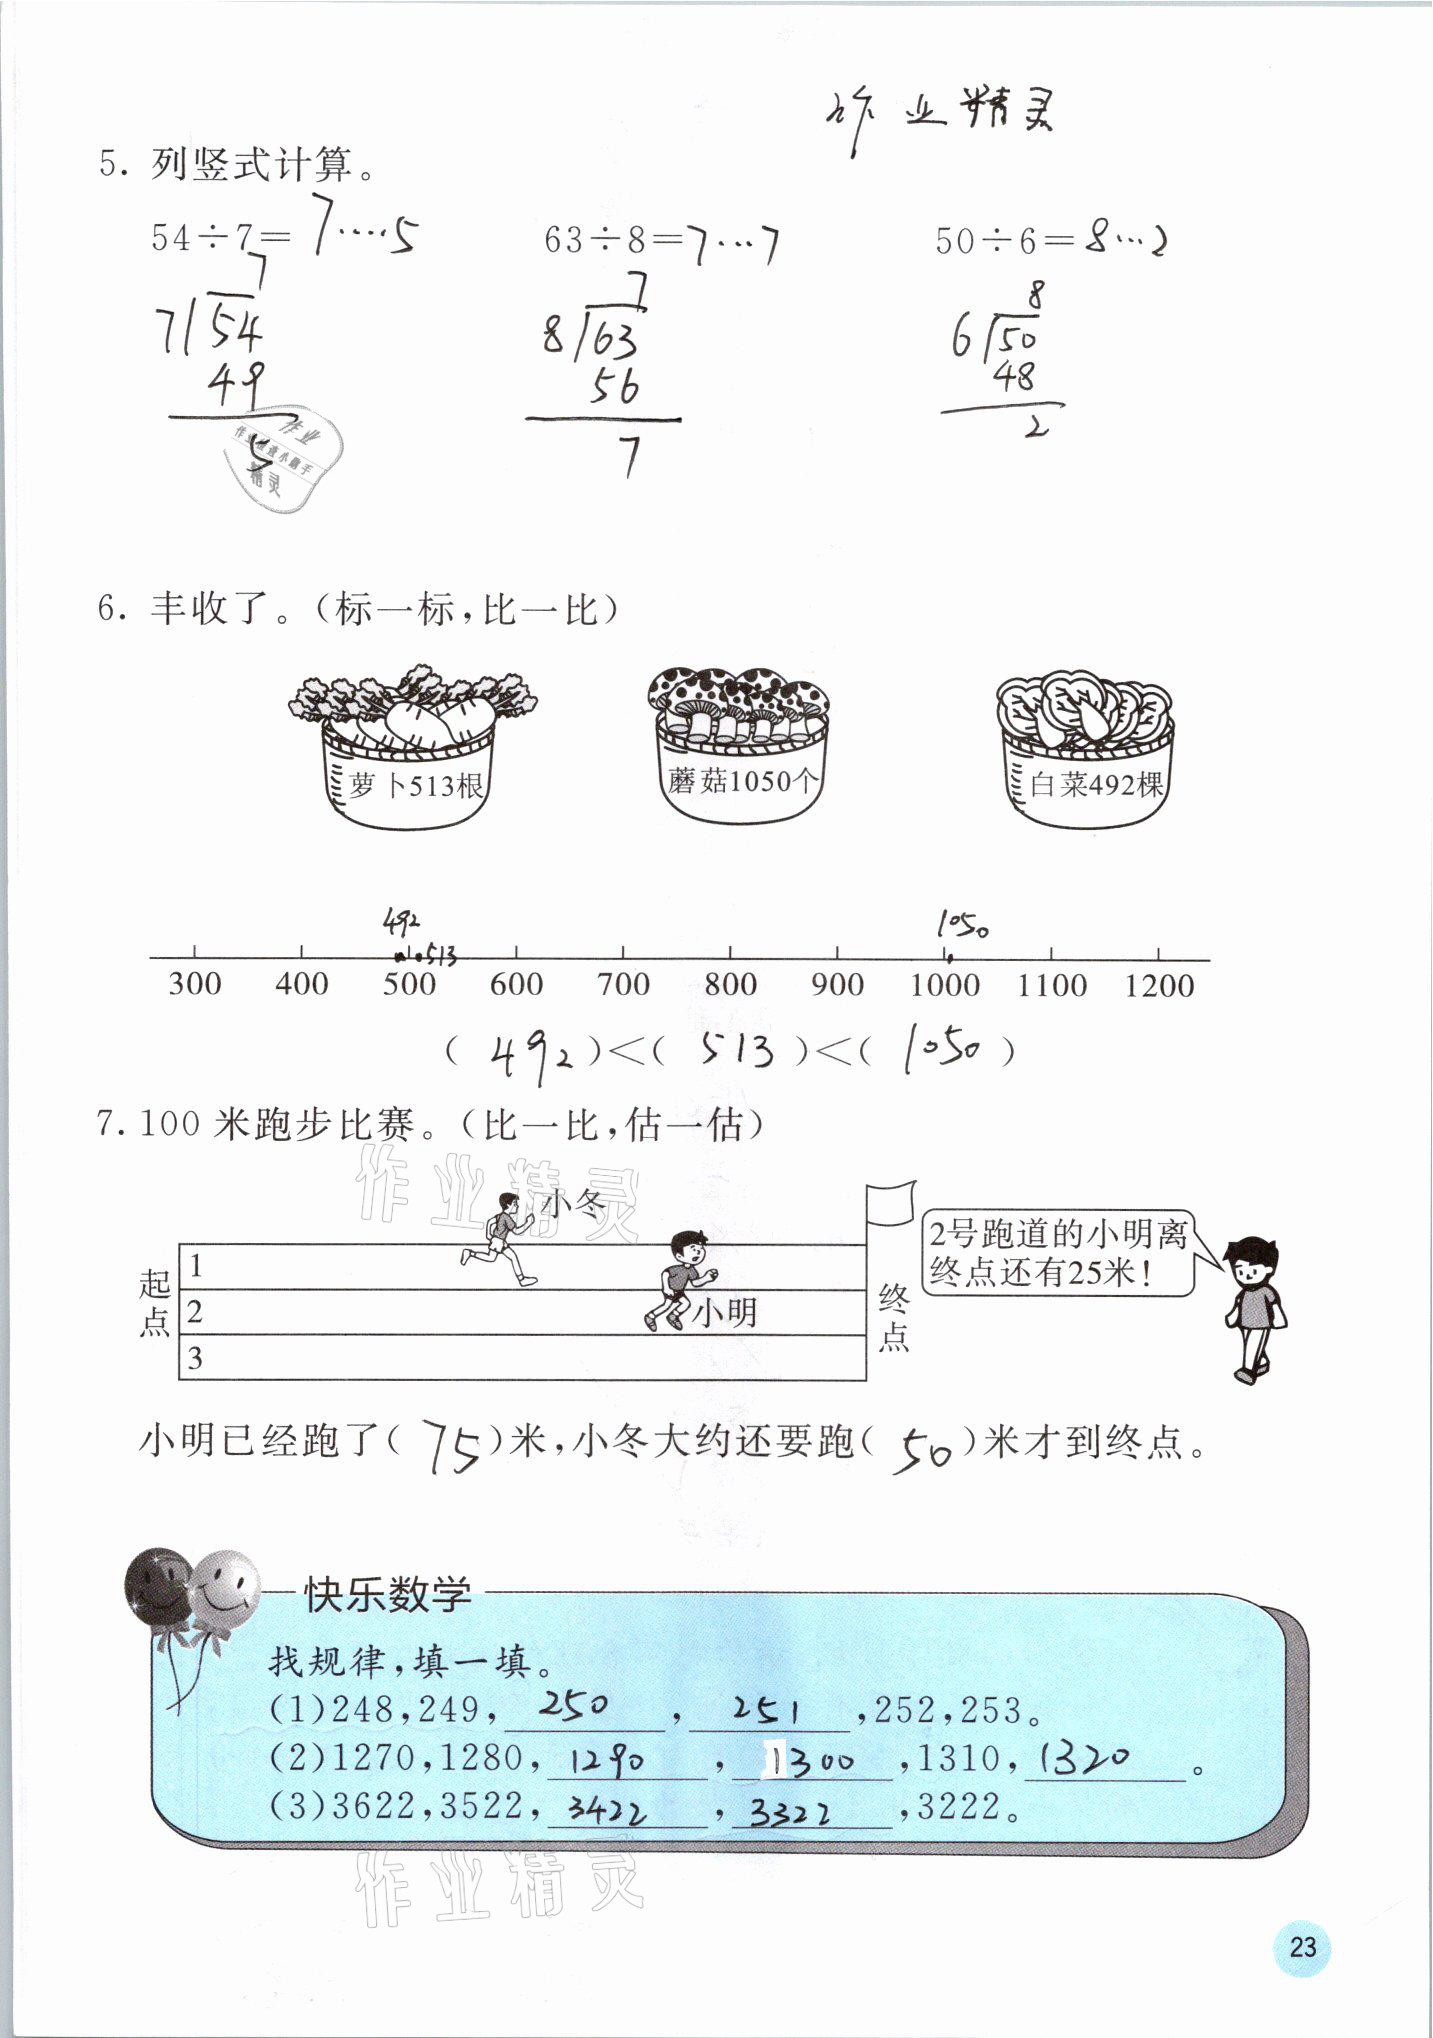 作业精灵
5. 列竖式计算。
54÷7=7……5 63÷8=7…7 50÷6=8…2
7 7 8
7 54 8 63 6 50
49 56 48
5 7 2
作业
作业检查小助手
精灵
6. 丰收了。(标一标,比一比)
萝卜513根 蘑菇1050个 白菜492棵
492 513 1050
300 400 500 600 700 800 900 1000 1100 1200
(492)<(513)<(1050)
7. 100 米跑步比赛。(比一比,估一估)
作业精灵
小冬
2号跑道的小明离
终点还有25米!
起点 1 2 3 小明 终点
小明已经跑了(75)米,小冬大约还要跑(50)米才到终点。
快乐数学
找规律,填一填。
(1)248,249,250,251,252,253。
(2)1270,1280,1290,1300,1310,1320。
(3)3622,3522,3422,3322,3222。
作业精灵
23